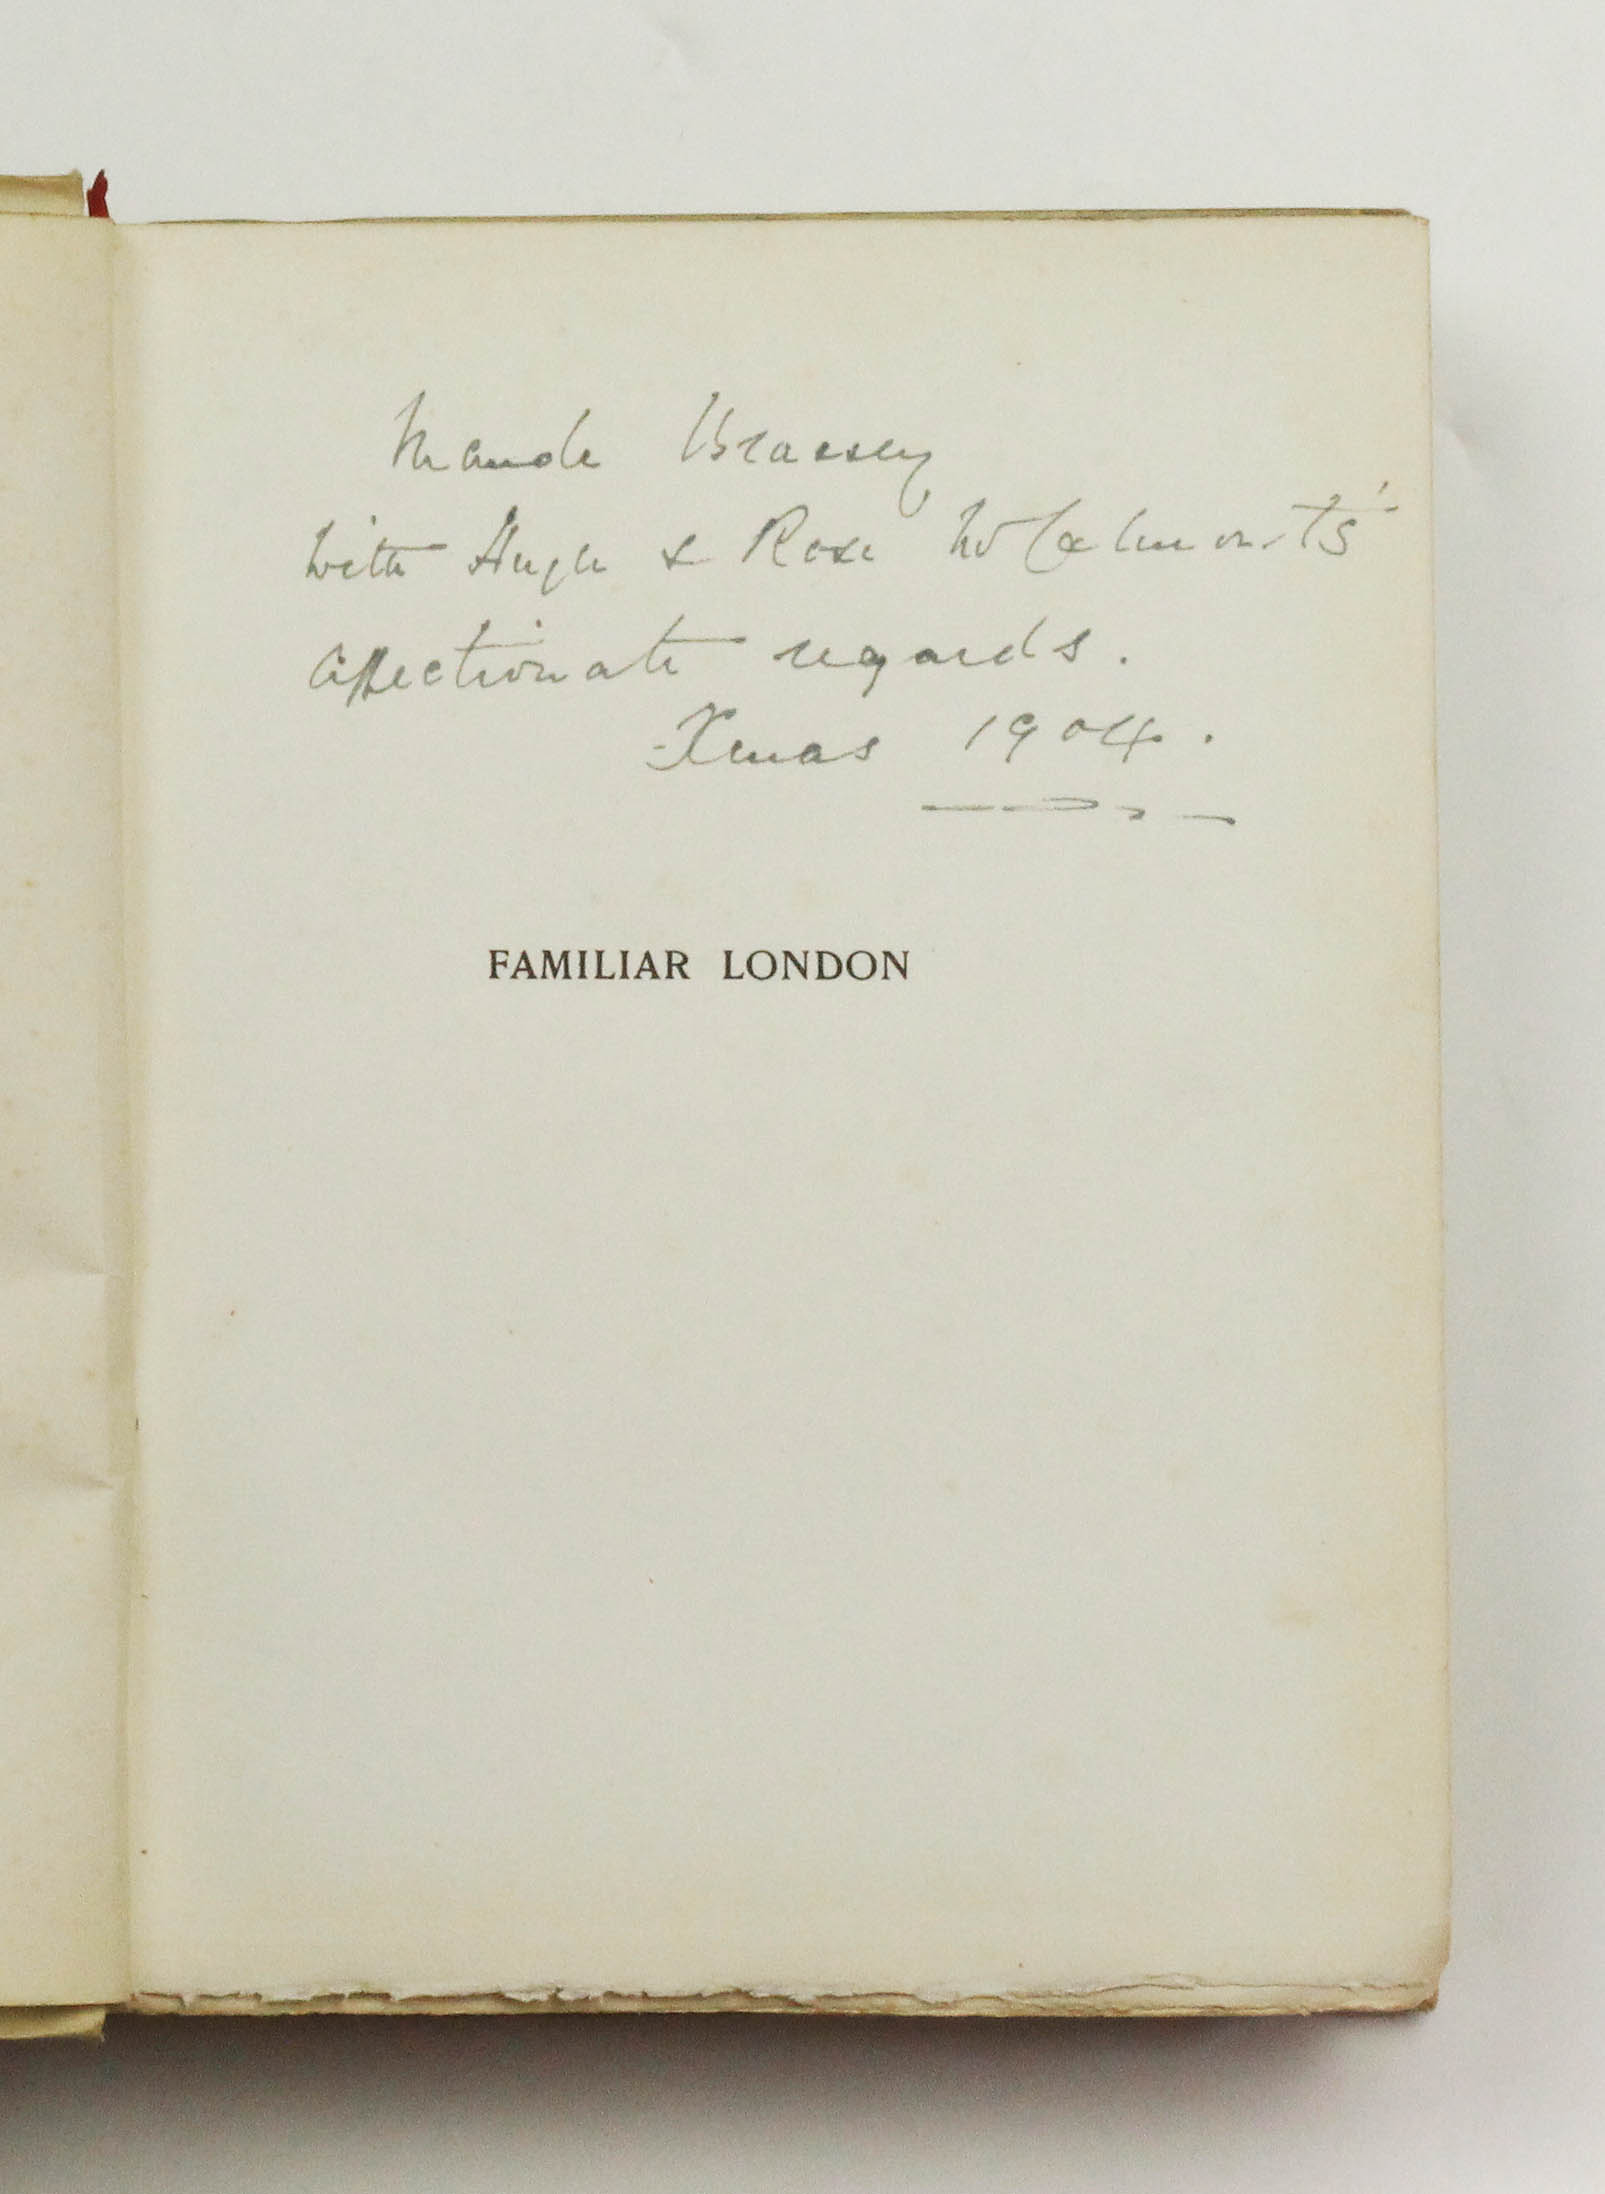 Maude Brassey
with Hugh & Rose McCalmont's
affectionate regards.
Xmas 1904.
FAMILIAR LONDON